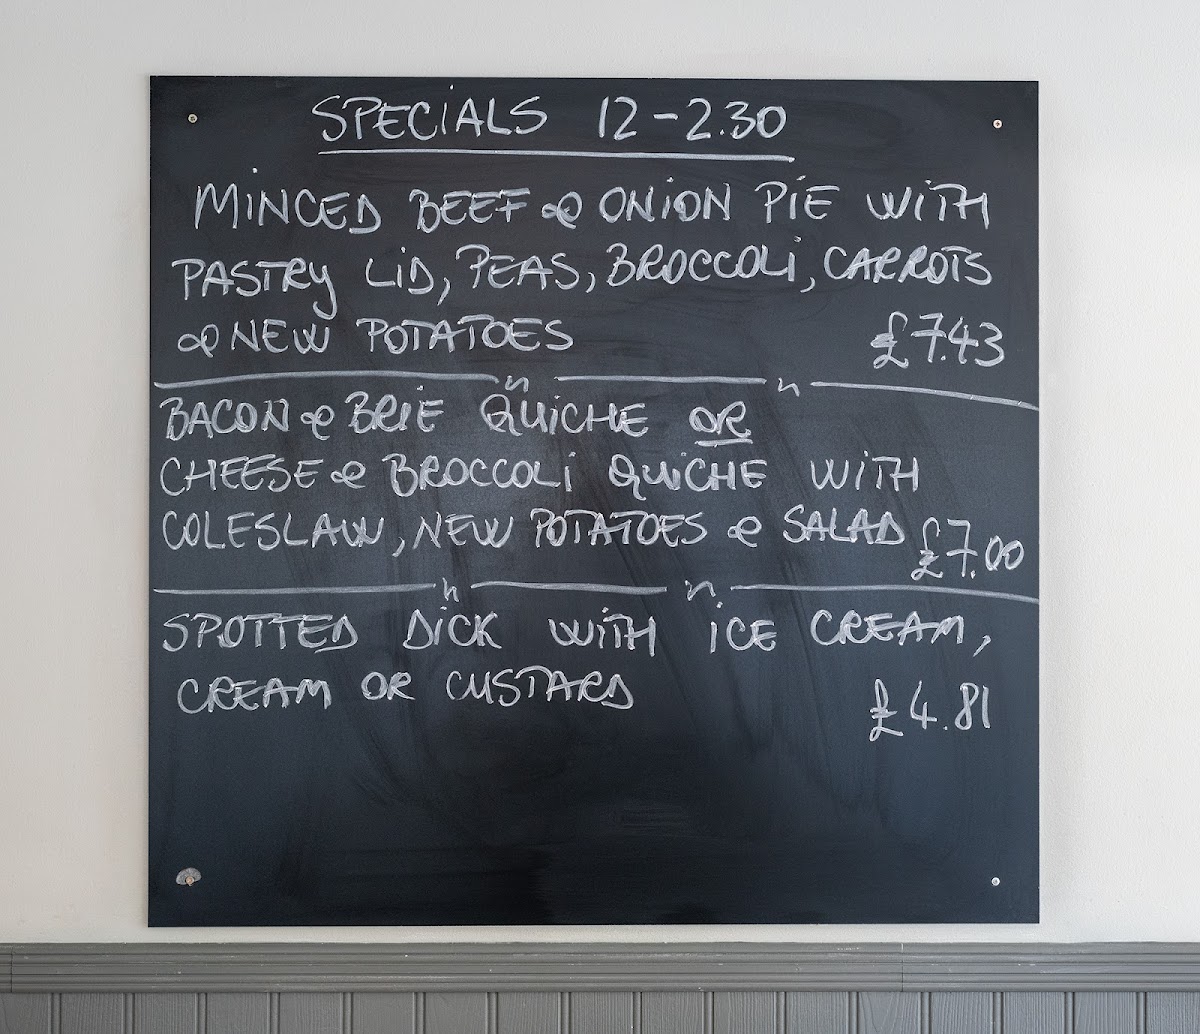 SPECIALS 12-2.30
MINCED BEEF & ONION PIE WITH
PASTRY LID, PEAS, BROCCOLI, CARROTS
& NEW POTATOES £7.43
BACON & BRIE QUICHE OR
CHEESE & BROCCOLI QUICHE WITH
COLESLAW, NEW POTATOES & SALAD £7.00
SPOTTED DICK WITH ICE CREAM,
CREAM OR CUSTARD £4.81